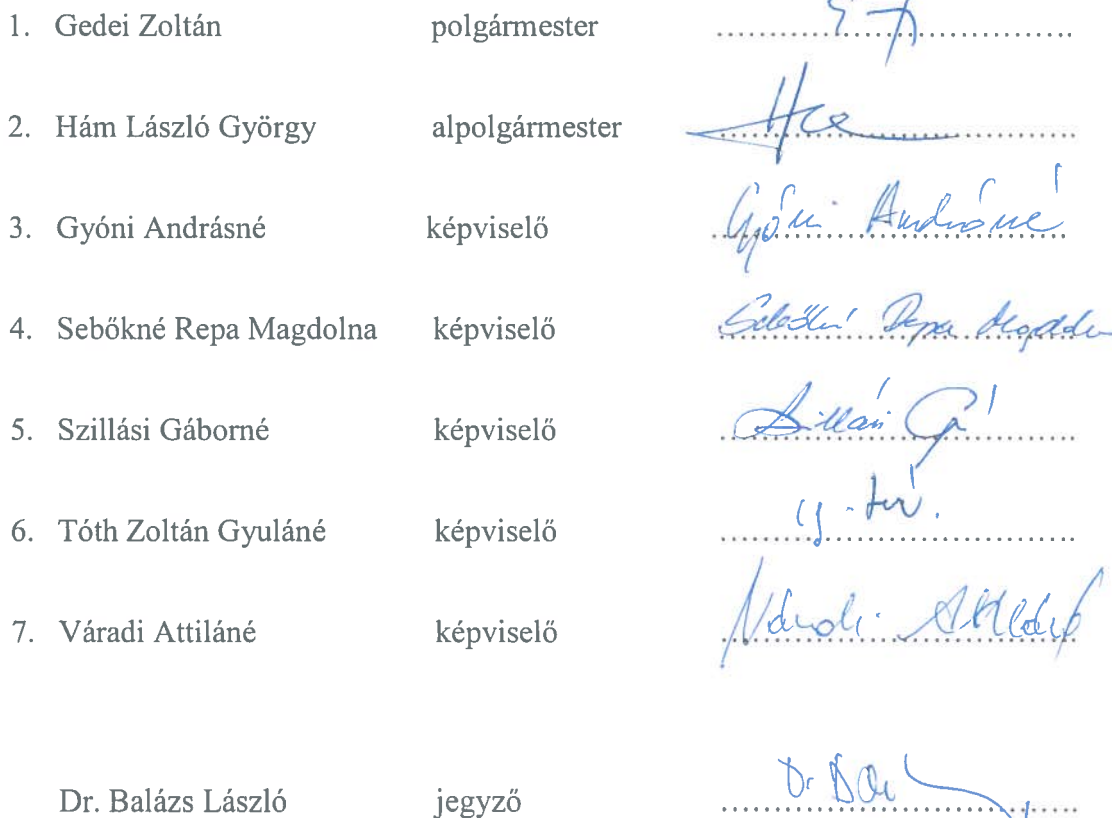 1. Gedei Zoltán polgármester
2. Hám László György alpolgármester
3. Gyóni Andrásné képviselő Gyóni Andrásné
4. Sebőkné Repa Magdolna képviselő Sebőkné Repa Magdolna
5. Szillási Gáborné képviselő
6. Tóth Zoltán Gyuláné képviselő
7. Váradi Attiláné képviselő Váradi Attiláné
Dr. Balázs László jegyző Dr